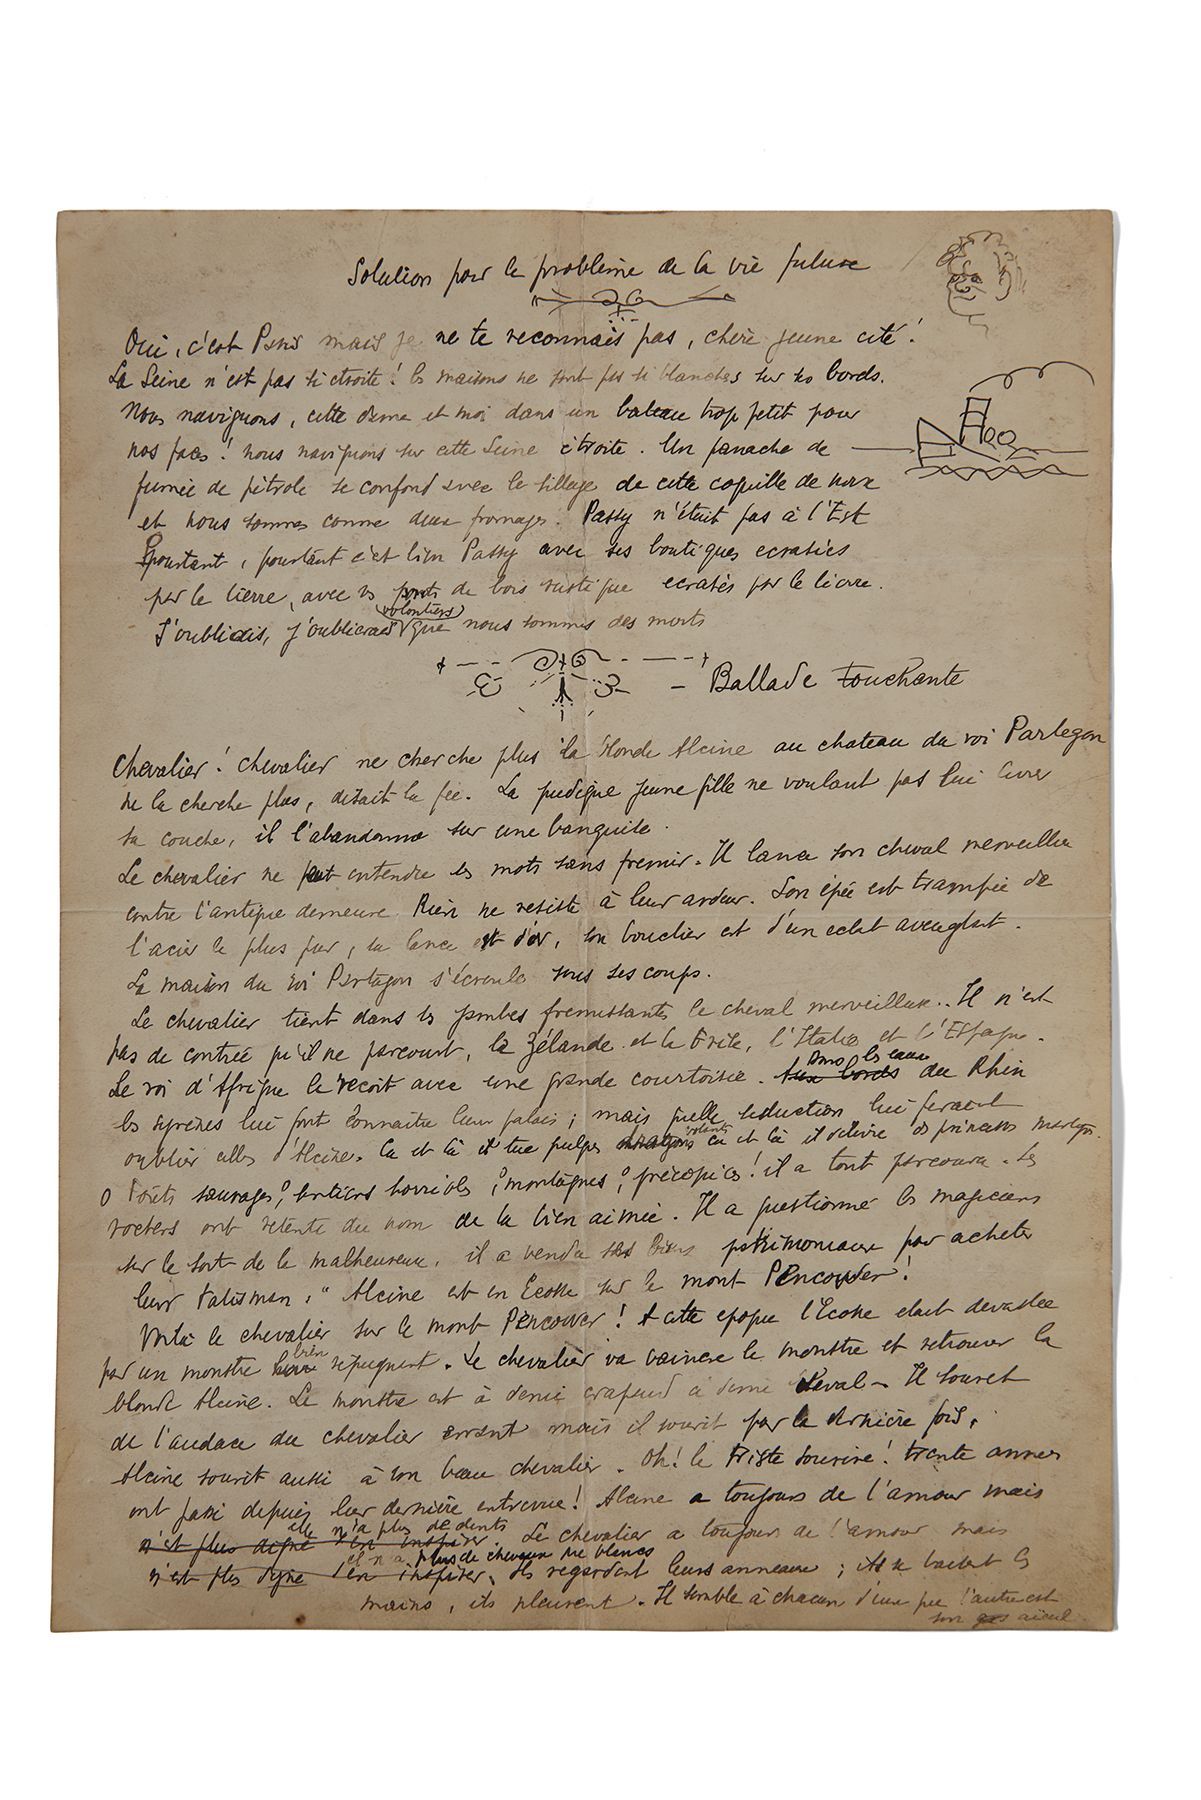 Solution pour le problème de la vie future
Oui, c'est Paris mais je ne te reconnais pas, chère jeune cité !
La Seine n'est pas si étroite ! les maisons ne sont pas si blanches sur ses bords.
Nous naviguons, cette dame et moi dans un bateau trop petit pour
nos pas ! nous naviguons sur cette Seine étroite. Un panache de
fumée de pétrole se confond avec le sillage de cette coquille de noix
et nous sommes comme deux fromages. Passy n'était pas à l'Est
pourtant, pourtant c'est bien Passy avec ses boutiques ecrasées
par le lierre, avec ses ponts de bois rustique ecrasés par le lierre.
J'oubliais, j'oublierais (volontiers) que nous sommes des morts
- Ballade touchante
Chevalier ! chevalier ne cherche plus la blonde Alcine au chateau du roi Partagon
ne la cherche plus, disait la fée. La pudique jeune fille ne voulant pas lui livrer
sa couche, il l'abandonna sur une banquise.
Le chevalier ne peut entendre ces mots sans fremir. Il lance son cheval merveilleux
contre l'antique demeure. Rien ne resiste à leur ardeur. Son épée est trempée de
l'acier le plus pur, sa lance est d'or, son bouclier est d'un eclat aveuglant.
La maison du roi Partagon s'écroule sous ses coups.
Le chevalier tient dans ses jambes fremissantes le cheval merveilleux.. Il n'est
pas de contrée qu'il ne parcourt, la Zélande et la Frise, l'Italie et l'Espagne.
Le roi d'Afrique le reçoit avec une grande courtoisie. Aux bords dans les eaux du Rhin
les syrènes lui font connaitre leur palais ; mais quelle seduction lui ferait
oublier celles d'Alcine. Ca et là il tue quelques dragons volants ca et là il délivre des princesses
O forêts sauvages, sentiers horribles, montagnes, précipices ! il a tout parcouru. Les
rochers ont retenti du nom de la bien aimée. Il a questionné les magiciens
sur le sort de la malheureuse, il a vendu ses biens patrimoniaux pour acheter
leur talisman : " Alcine est en Ecosse sur le mont Pencower !
Voilà le chevalier sur le mont Pencower ! A cette epoque l'Ecosse etait devastée
par un monstre bien repugnant. Le chevalier va vaincre le monstre et retrouver la
blonde Alcine. Le monstre est à demi crapaud à demi cheval - Il sourit
de l'audace du chevalier errant mais il sourit pour la dernière fois.
Alcine sourit aussi à son beau chevalier. Oh ! le triste sourire ! trente années
ont passé depuis leur dernière entrevue ! Alcine a toujours de l'amour mais
n'est plus digne d'en inspirer elle n'a plus de dents. Le chevalier a toujours de l'amour mais
n'est plus digne d'en inspirer il n'a plus de cheveux que blancs. Ils regardent leurs anneaux ; ils se baisent les
mains, ils pleurent. Il semble à chacun d'eux que l'autre est
son aïeul